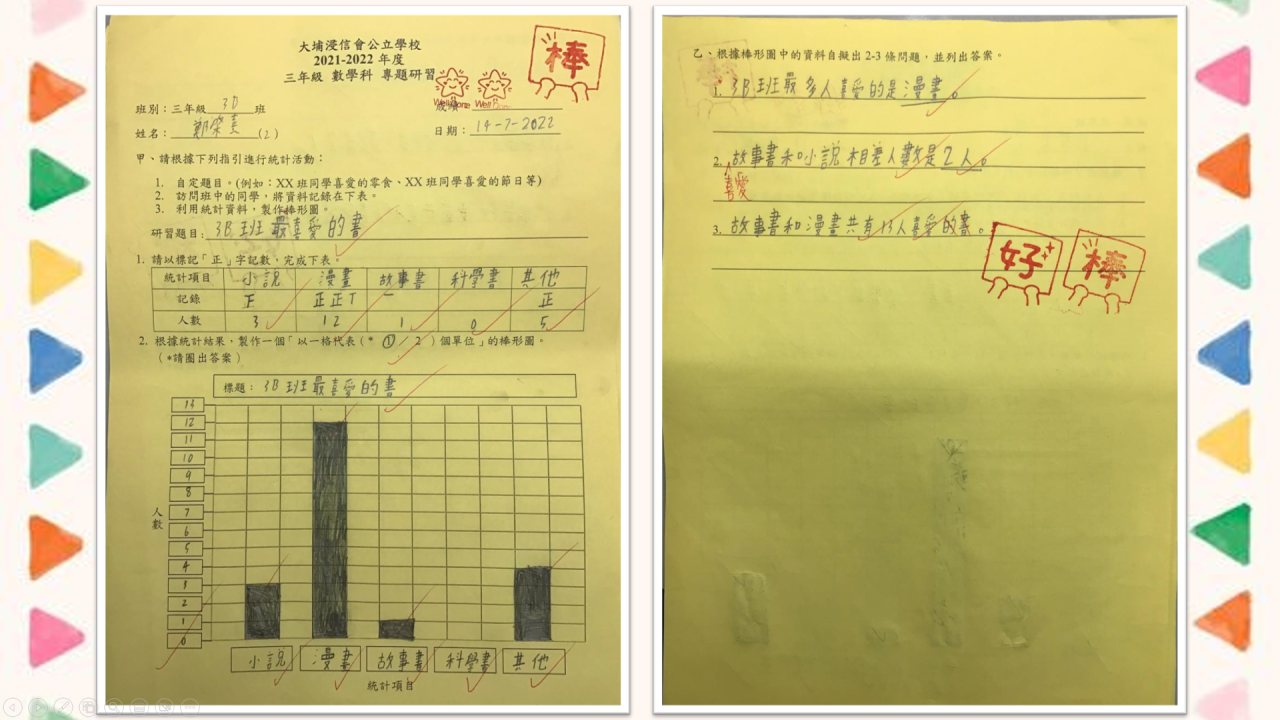 大埔浸信會公立學校
2021-2022 年度
三年級 數學科 專題研習
棒
Well Done Well Done
班別：三年級 3B 班
成績
姓名： (2)
日期：14-7-2022
甲、請根據下列指引進行統計活動：
1. 自定題目。(例如：XX 班同學喜愛的零食、XX 班同學喜愛的節日等)
2. 訪問班中的同學，將資料記錄在下表。
3. 利用統計資料，製作棒形圖。
研習題目：3B 班最喜愛的書
1. 請以標記「正」字記數，完成下表。
統計項目 小說 漫畫 故事書 科學書 其他
記錄 正正 正
人數 3 12 1 0 5
2. 根據統計結果，製作一個「以一格代表 (* ① / 2 ) 個單位」的棒形圖。
(*請圈出答案)
標題：3B 班最喜愛的書
13
12
11
10
9
8
7
6
5
4
3
2
1
0
人數
小說 漫畫 故事書 科學書 其他
統計項目
乙、根據棒形圖中的資料自擬出 2-3 條問題，並列出答案。
1. 3B 班最多人喜愛的是漫書。
2. 故事書和小說相差人數是2人。
喜愛
3. 故事書和漫畫共有13人喜愛的書。
好 棒